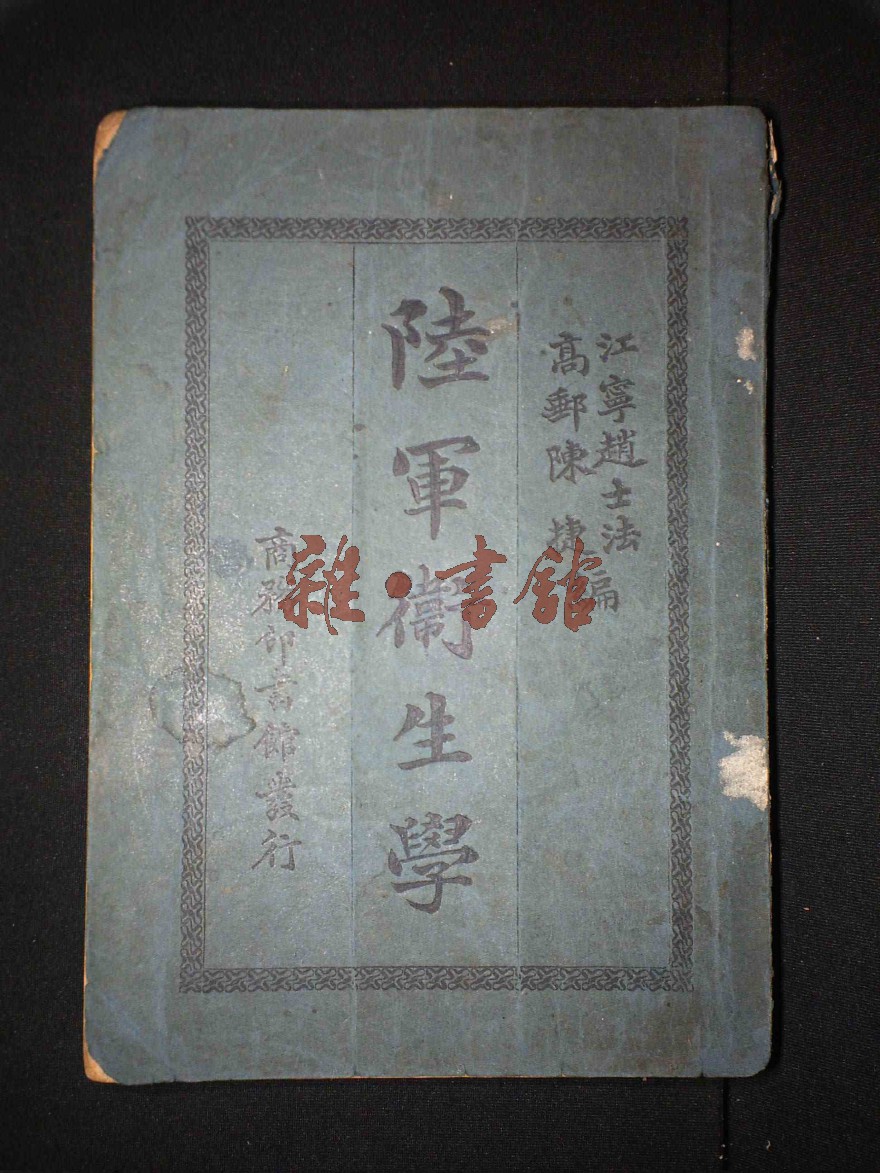 江寧趙士法
高郵陳捷編
陸軍衛生學
商務印書館發行
雜·書館